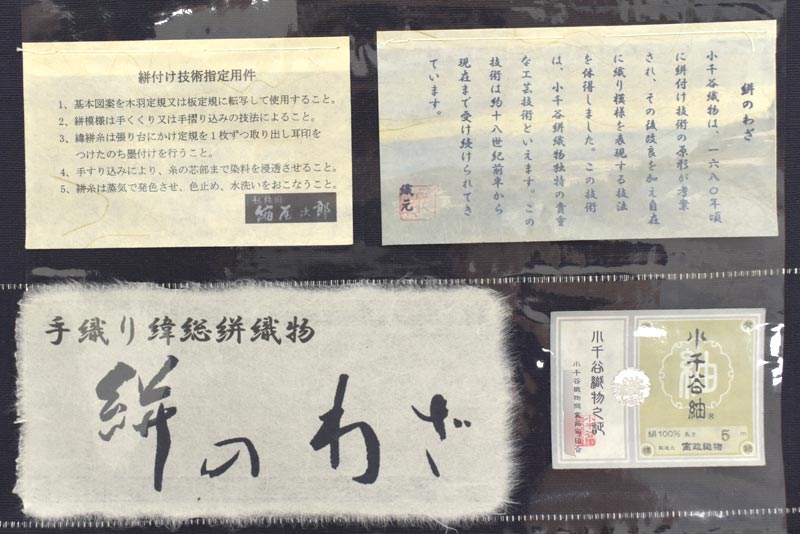 絣付け技術指定用件
1、基本図案を木羽定規又は板定規に転写して使用すること。
2、絣模様は手くくり又は手摺り込みの技法によること。
3、緯絣糸は張り台にかけ定規を1枚ずつ取り出し耳印を
つけたのち墨付けを行うこと。
4、手すり込みにより、糸の芯部まで染料を浸透させること。
5、絣糸は蒸気で発色させ、色止め、水洗いをおこなうこと。
次郎
絣のわざ
小千谷織物は、一六八〇年頃
に絣付け技術の原形が考案
され、その後改良を加え自在
に織り模様を表現する技法
を体得しました。この技術
は、小千谷絣織物独特の貴重
な工芸技術といえます。この
技術は約十八世紀前半から
現在まで受け続けられてき
ています。
織元
手織り緯総絣織物
絣のわざ
小千谷織物之証
小千谷織物同業協同組合
紬
小千谷紬®
絹100% 長さ 5m
製造元
織物